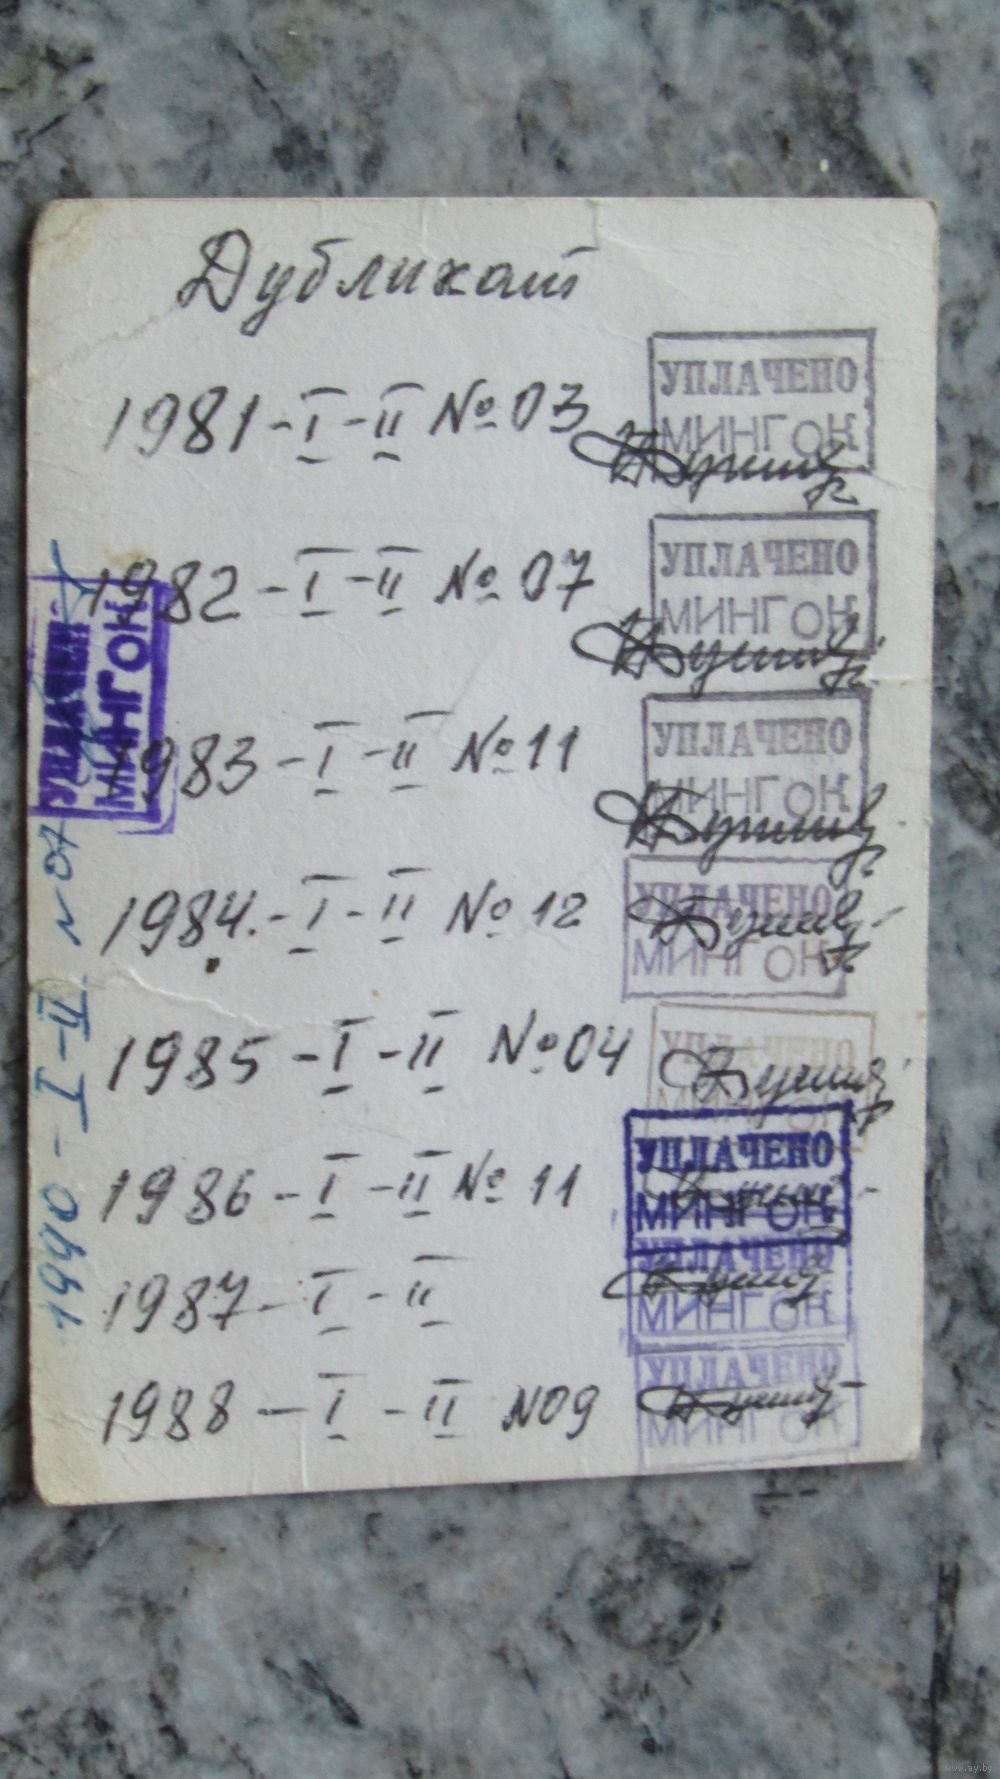 Дубликат
1981 - I - II № 03
УПЛАЧЕНО
МИНГОК
1982 - I - II № 07
УПЛАЧЕНО
МИНГОК
1983 - I - II № 11
УПЛАЧЕНО
МИНГОК
1984. - I - II № 12
УПЛАЧЕНО
МИНГОК
1985 - I - II № 04
УПЛАЧЕНО
МИНГОК
1986 - I - II № 11
УПЛАЧЕНО
МИНГОК
1987 - I - II
УПЛАЧЕНО
МИНГОК
1988 - I - II N09
УПЛАЧЕНО
МИНГОК
1990 - I - II
УПЛАЧЕНО
МИНГОК
www.ay.by